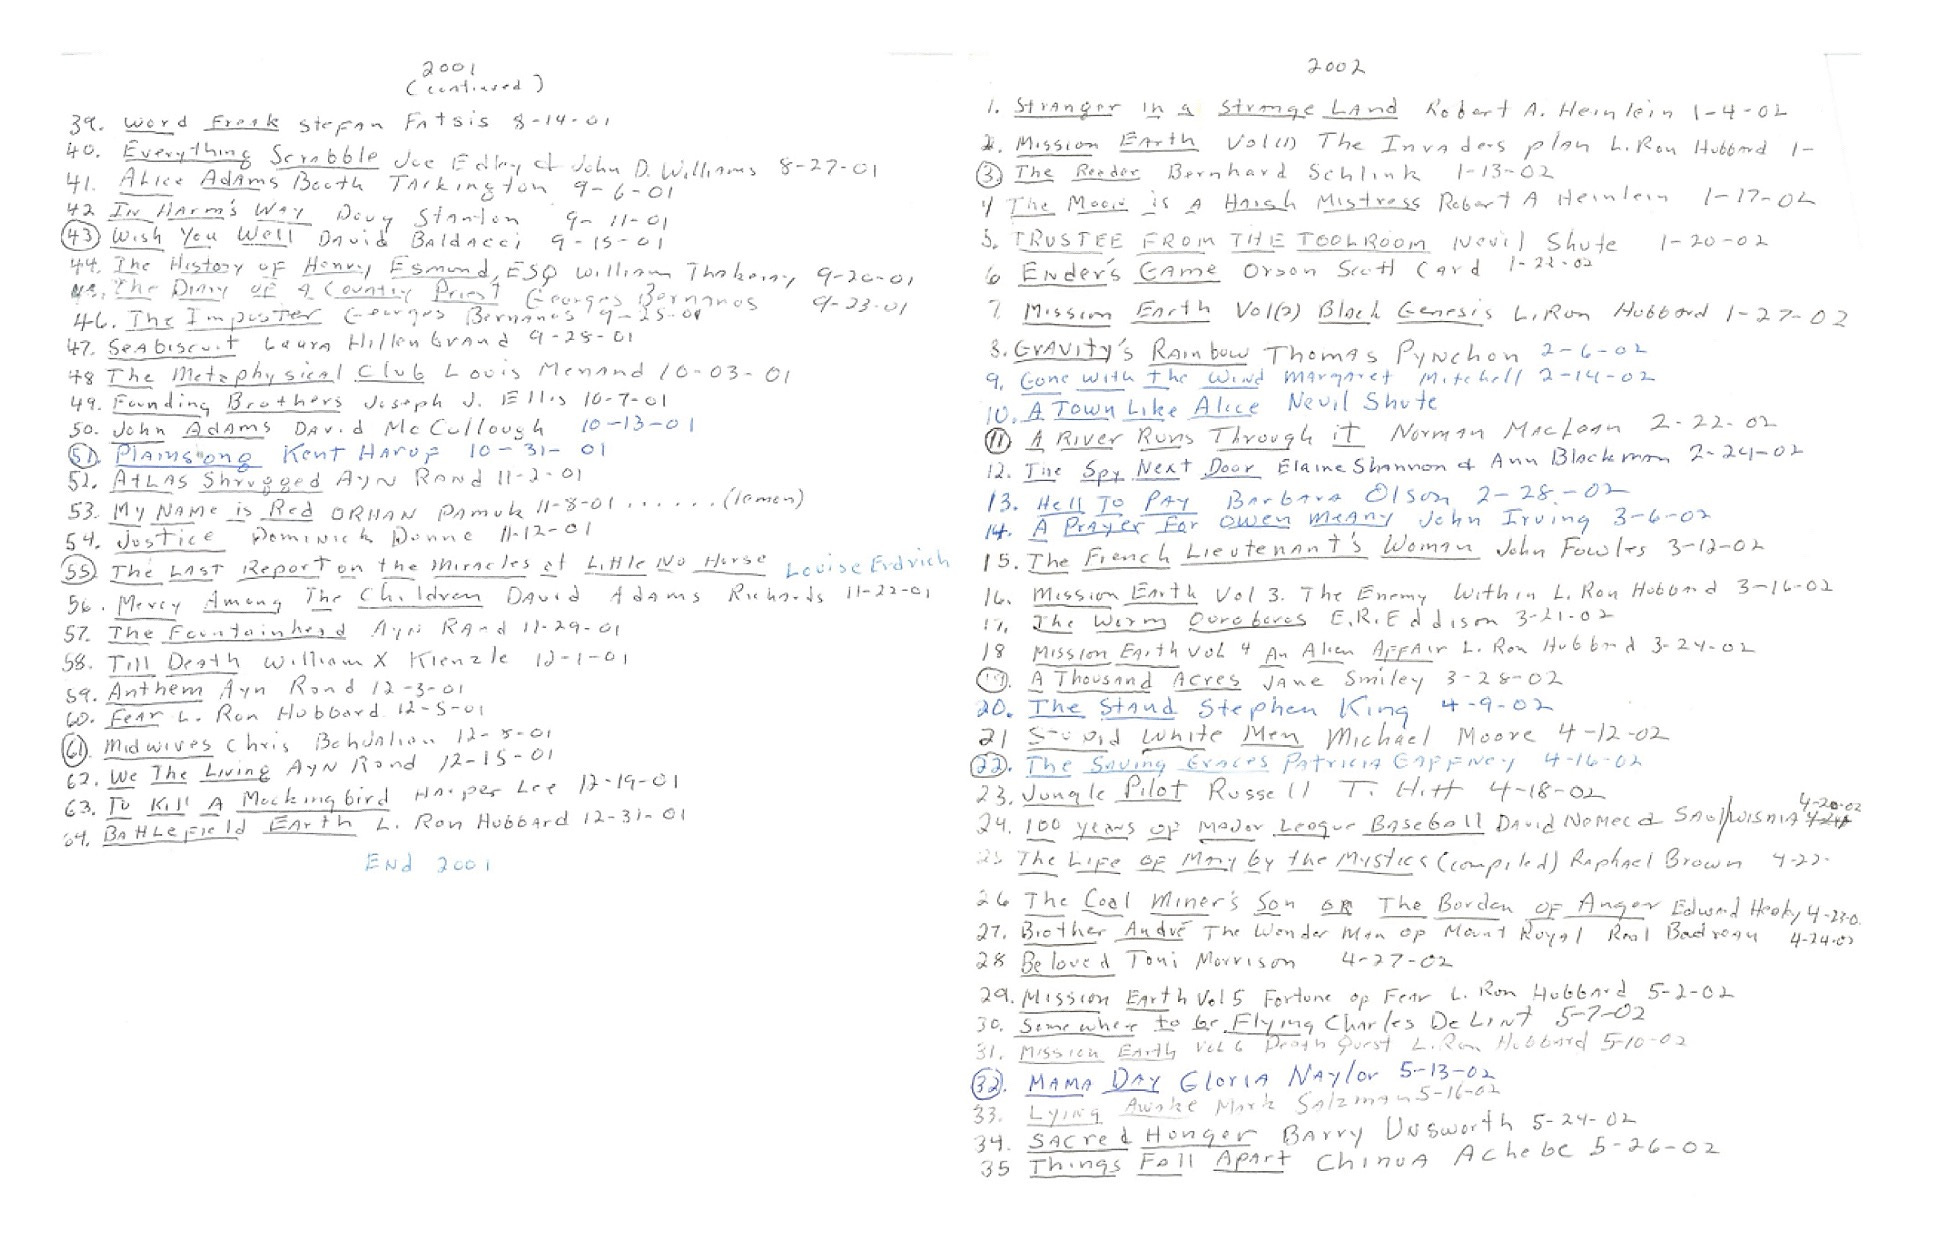 2001
(continued)
39. Word Freak Stefan Fatsis 8-14-01
40. Everything Scrabble Joe Edley & John D. Williams 8-27-01
41. Alice Adams Booth Tarkington 9-6-01
42 In Harm's Way Doug Stanton 9-11-01
43 Wish You Well David Baldacci 9-15-01
44. The History of Henry Esmund, ESQ William Thakeray 9-20-01
45. The Diary of a Country Priest Georges Bernanos 9-23-01
46. The Imposter Georges Bernanos 9-25-01
47. Seabiscuit Laura Hillenbrand 9-28-01
48 The Metaphysical Club Louis Menand 10-03-01
49. Founding Brothers Joseph J. Ellis 10-7-01
50. John Adams David McCullough 10-13-01
51. Plainsong Kent Haruf 10-31-01
52. Atlas Shrugged Ayn Rand 11-2-01
53. My Name is Red ORHAN Pamuk 11-8-01 ...... (lemen)
54. Justice Dominick Dunne 11-12-01
55 The Last Report on the Miracles at Little No Horse Louise Erdrich
56. Mercy Among The Children David Adams Richards 11-22-01
57. The Fountainhead Ayn Rand 11-29-01
58. Till Death William X Kienzle 12-1-01
59. Anthem Ayn Rand 12-3-01
60. Fear L. Ron Hubbard 12-5-01
61. Midwives Chris Bohjalian 12-8-01
62. We The Living Ayn Rand 12-15-01
63. To Kill A Mockingbird Harper Lee 12-19-01
64. Battlefield Earth L. Ron Hubbard 12-31-01
End 2001
2002
1. Stranger in a Strange Land Robert A. Heinlein 1-4-02
2. Mission Earth Vol(1) The Invaders plan L. Ron Hubbard 1-
3. The Reader Bernhard Schlink 1-13-02
4 The Moon is a Harsh Mistress Robert A Heinlein 1-17-02
5. TRUSTEE FROM THE TOOLROOM Nevil Shute 1-20-02
6 Ender's Game Orson Scott Card 1-22-02
7. Mission Earth Vol(2) Black Genesis L. Ron Hubbard 1-27-02
8. Gravity's Rainbow Thomas Pynchon 2-6-02
9. Gone with the Wind Margaret Mitchell 2-14-02
10. A Town Like Alice Nevil Shute
11 A River Runs Through it Norman MacLean 2-22-02
12. The Spy Next Door Elaine Shannon & Ann Blackman 2-24-02
13. Hell To Pay Barbara Olson 2-28-02
14. A Prayer For Owen Meany John Irving 3-6-02
15. The French Lieutenant's Woman John Fowles 3-12-02
16. Mission Earth Vol 3. The Enemy Within L. Ron Hubbard 3-16-02
17. The Worm Ouroboros E.R. Eddison 3-21-02
18 Mission Earth Vol 4 An Alien Affair L. Ron Hubbard 3-24-02
19. A Thousand Acres Jane Smiley 3-28-02
20. The Stand Stephen King 4-9-02
21 Stupid White Men Michael Moore 4-12-02
22. The Saving Graces Patricia Gaffney 4-16-02
23. Jungle Pilot Russell T. Hitt 4-18-02
24. 100 years of Major League Baseball David Nemec & Saul Wisnia 4-20-02
25 The Life of Mary by the Mystics (compiled) Raphael Brown 4-22-
26 The Coal Miner's Son OR The Burden of Anger Edward Heaky 4-23-0
27. Brother André The Wonder Man of Mount Royal Real Badreau 4-24-02
28 Beloved Toni Morrison 4-27-02
29. Mission Earth Vol 5 Fortune of Fear L. Ron Hubbard 5-2-02
30. Somewhere to be Flying Charles De Lint 5-7-02
31. Mission Earth Vol 6 Death Quest L. Ron Hubbard 5-10-02
32. Mama Day Gloria Naylor 5-13-02
33. Lying Awake Mark Salzman 5-16-02
34. Sacred Hunger Barry Unsworth 5-24-02
35 Things Fall Apart Chinua Achebe 5-26-02